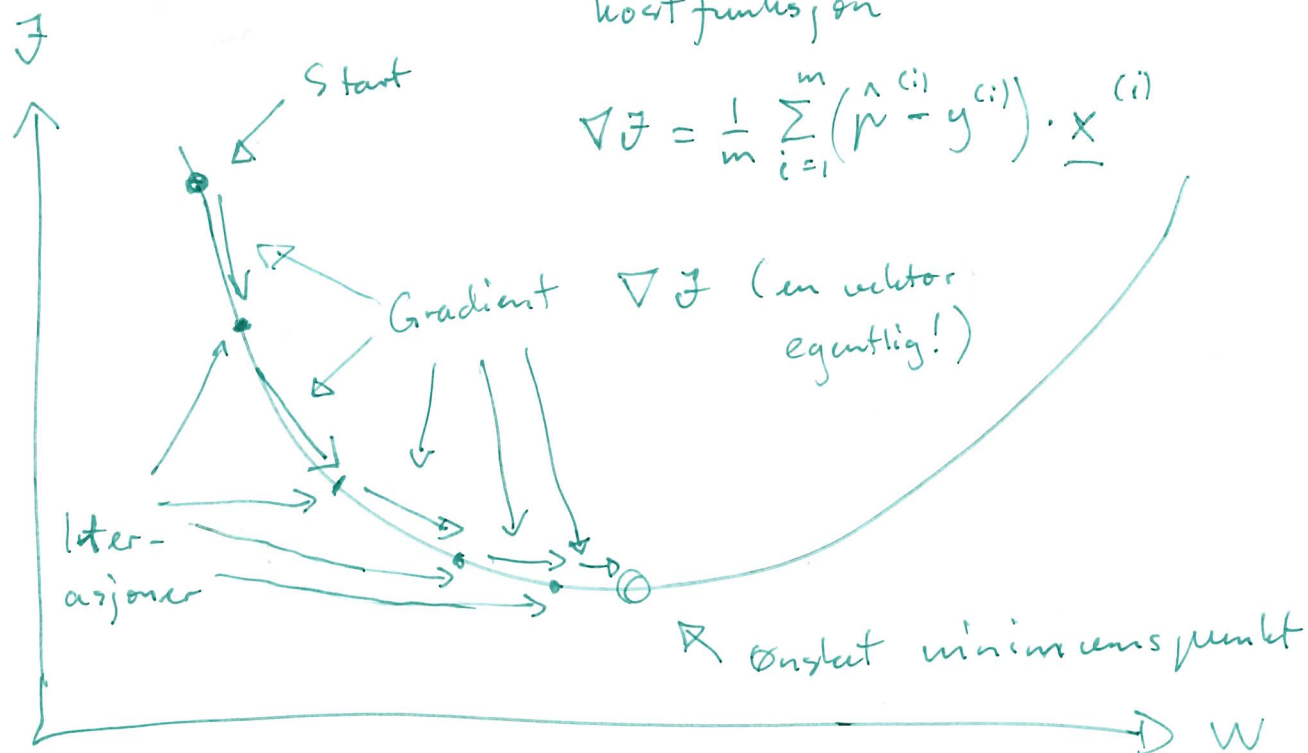 kostfunksjon
J
Start
∇J = 1/m ∑_{i=1}^{m} (p̂^(i) - y^(i)) · x^(i)
Gradient ∇J (en vektor
egentlig!)
Iter-
asjoner
Ønsket minimumspunkt
W